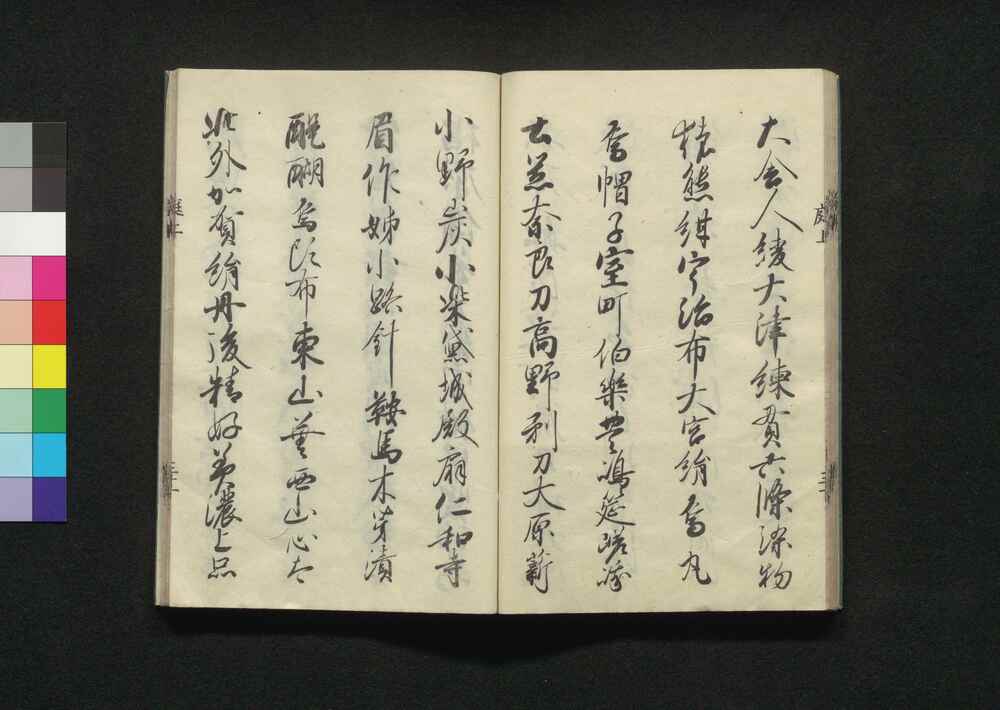 大舎人綾大津練貫六條染物
猪熊紺宇治布大宮絹烏丸
烏帽子室町伯樂豊嶋筵嵯峨
土器奈良刀高野剃刀大原薪
小野炭小柴黛城殿扇仁和寺
眉作姉小路針鞍馬木芽漬
醍醐烏頭布東山蕪西山心太
此外加賀絹丹後精好美濃上品
庭上
庭上